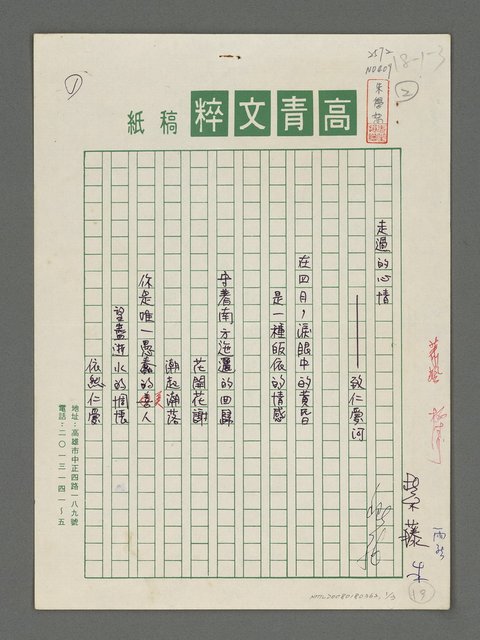 2572
N0409
18-1-3
①
②
高青文粹 稿紙
走過的心情
————致仁愛河
在四月，淚眼中的黃昏
是一種皈依的情感
守着南方迤邐的回歸
花開花謝
潮起潮落
你是唯一愚蠢的美人
望盡游水的惆悵
依然仁愛
地址：高雄市中正四路一八九號
電話：二〇一三一四一～五
紫藤
19